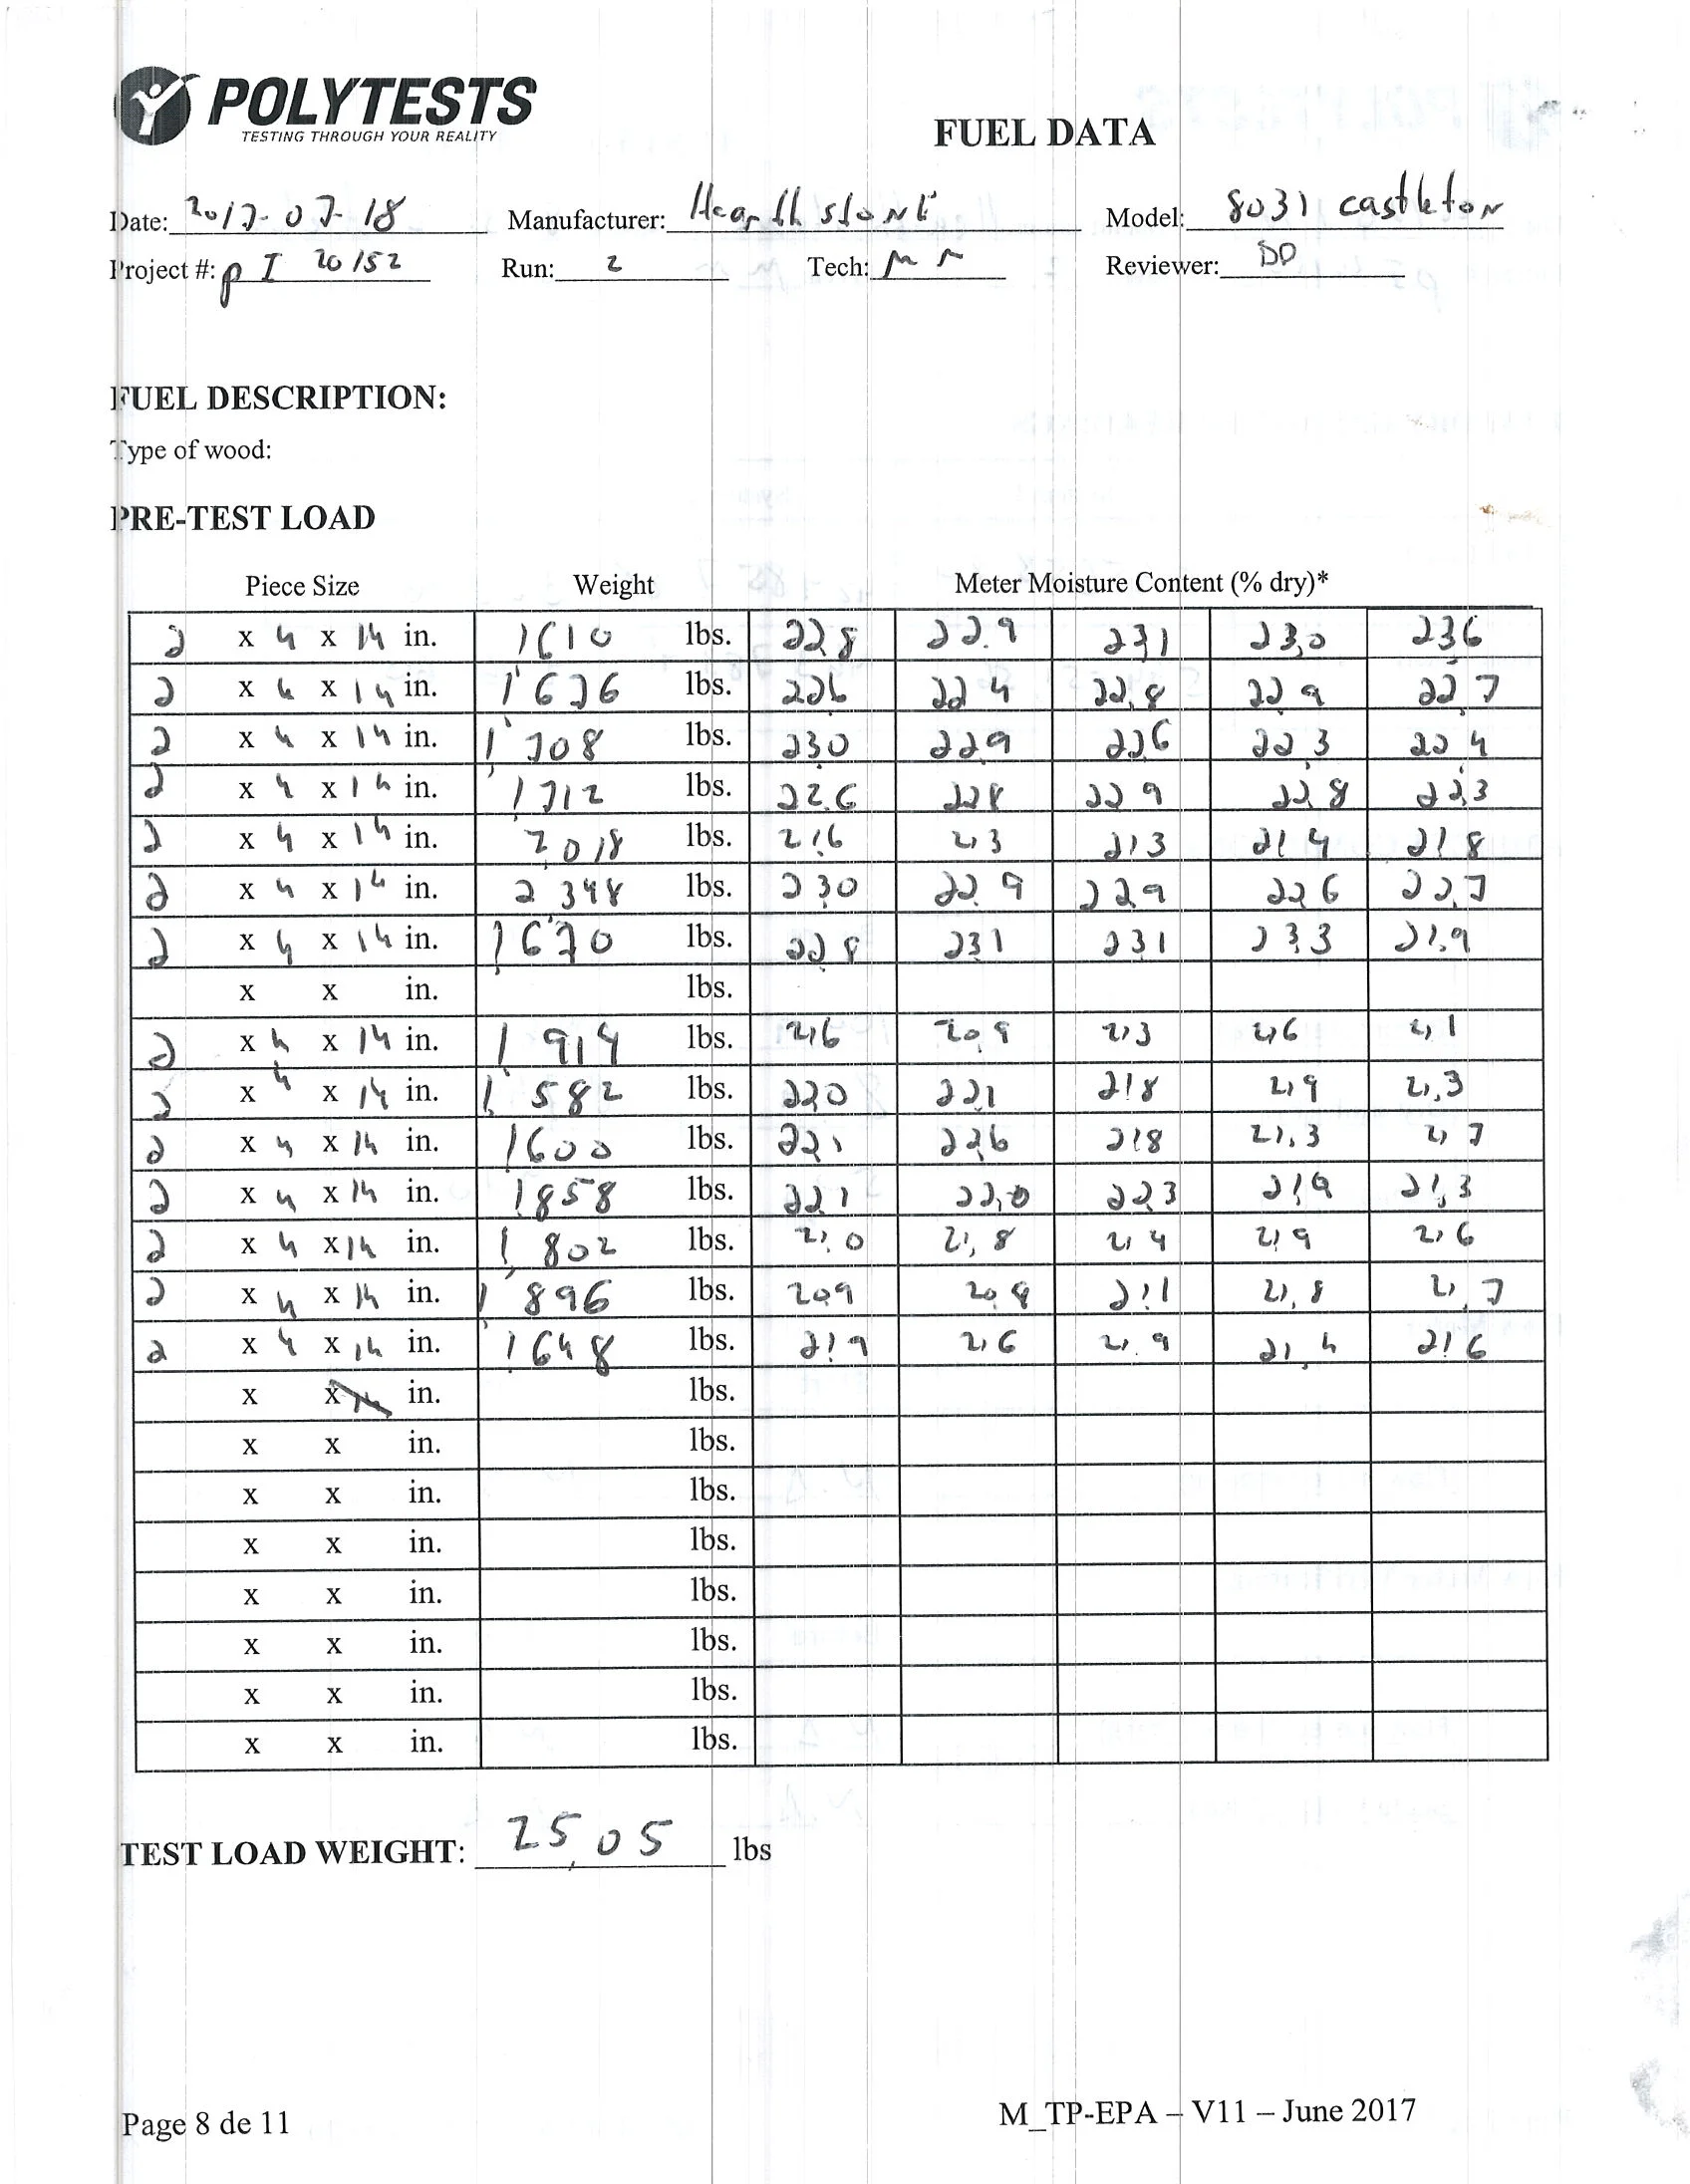 POLYTESTS
TESTING THROUGH YOUR REALITY
FUEL DATA
Date: 2017-07-18 Manufacturer: Hearthstone Model: 8031 castleton
Project #: PI 20152 Run: 2 Tech: Reviewer: DD
FUEL DESCRIPTION:
Type of wood:
PRE-TEST LOAD
Piece Size Weight Meter Moisture Content (% dry)*
2 x 4 x 14 in. 1,610 lbs. 22,8 22.9 23,1 23,0 23,6
2 x 4 x 14 in. 1,626 lbs. 22,6 22,4 22,8 22,9 22,7
2 x 4 x 14 in. 1,708 lbs. 23,0 22,9 22,6 22,3 22,4
2 x 4 x 14 in. 1,712 lbs. 22,6 22,8 22,9 22,8 22,3
2 x 4 x 14 in. 2,018 lbs. 21,6 21,3 21,3 21,4 21,8
2 x 4 x 14 in. 2,348 lbs. 23,0 22,9 22,9 22,6 22,7
2 x 4 x 14 in. 1,670 lbs. 22,8 23,1 23,1 23,3 21,9
x x in. lbs.
2 x 4 x 14 in. 1,914 lbs. 21,6 20,9 21,3 21,6 21,1
2 x 4 x 14 in. 1,582 lbs. 22,0 22,1 21,8 21,9 21,3
2 x 4 x 14 in. 1,600 lbs. 22,1 22,6 21,8 21,3 21,7
2 x 4 x 14 in. 1,858 lbs. 22,1 22,0 22,3 21,9 21,3
2 x 4 x 14 in. 1,802 lbs. 21,0 21,8 21,4 21,9 21,6
2 x 4 x 14 in. 1,896 lbs. 20,9 20,8 21,1 21,8 21,7
2 x 4 x 14 in. 1,648 lbs. 21,9 21,6 21,9 21,4 21,6
x x in. lbs.
x x in. lbs.
x x in. lbs.
x x in. lbs.
x x in. lbs.
x x in. lbs.
x x in. lbs.
x x in. lbs.
TEST LOAD WEIGHT: 25,05 lbs
Page 8 de 11 M_TP-EPA – V11 – June 2017